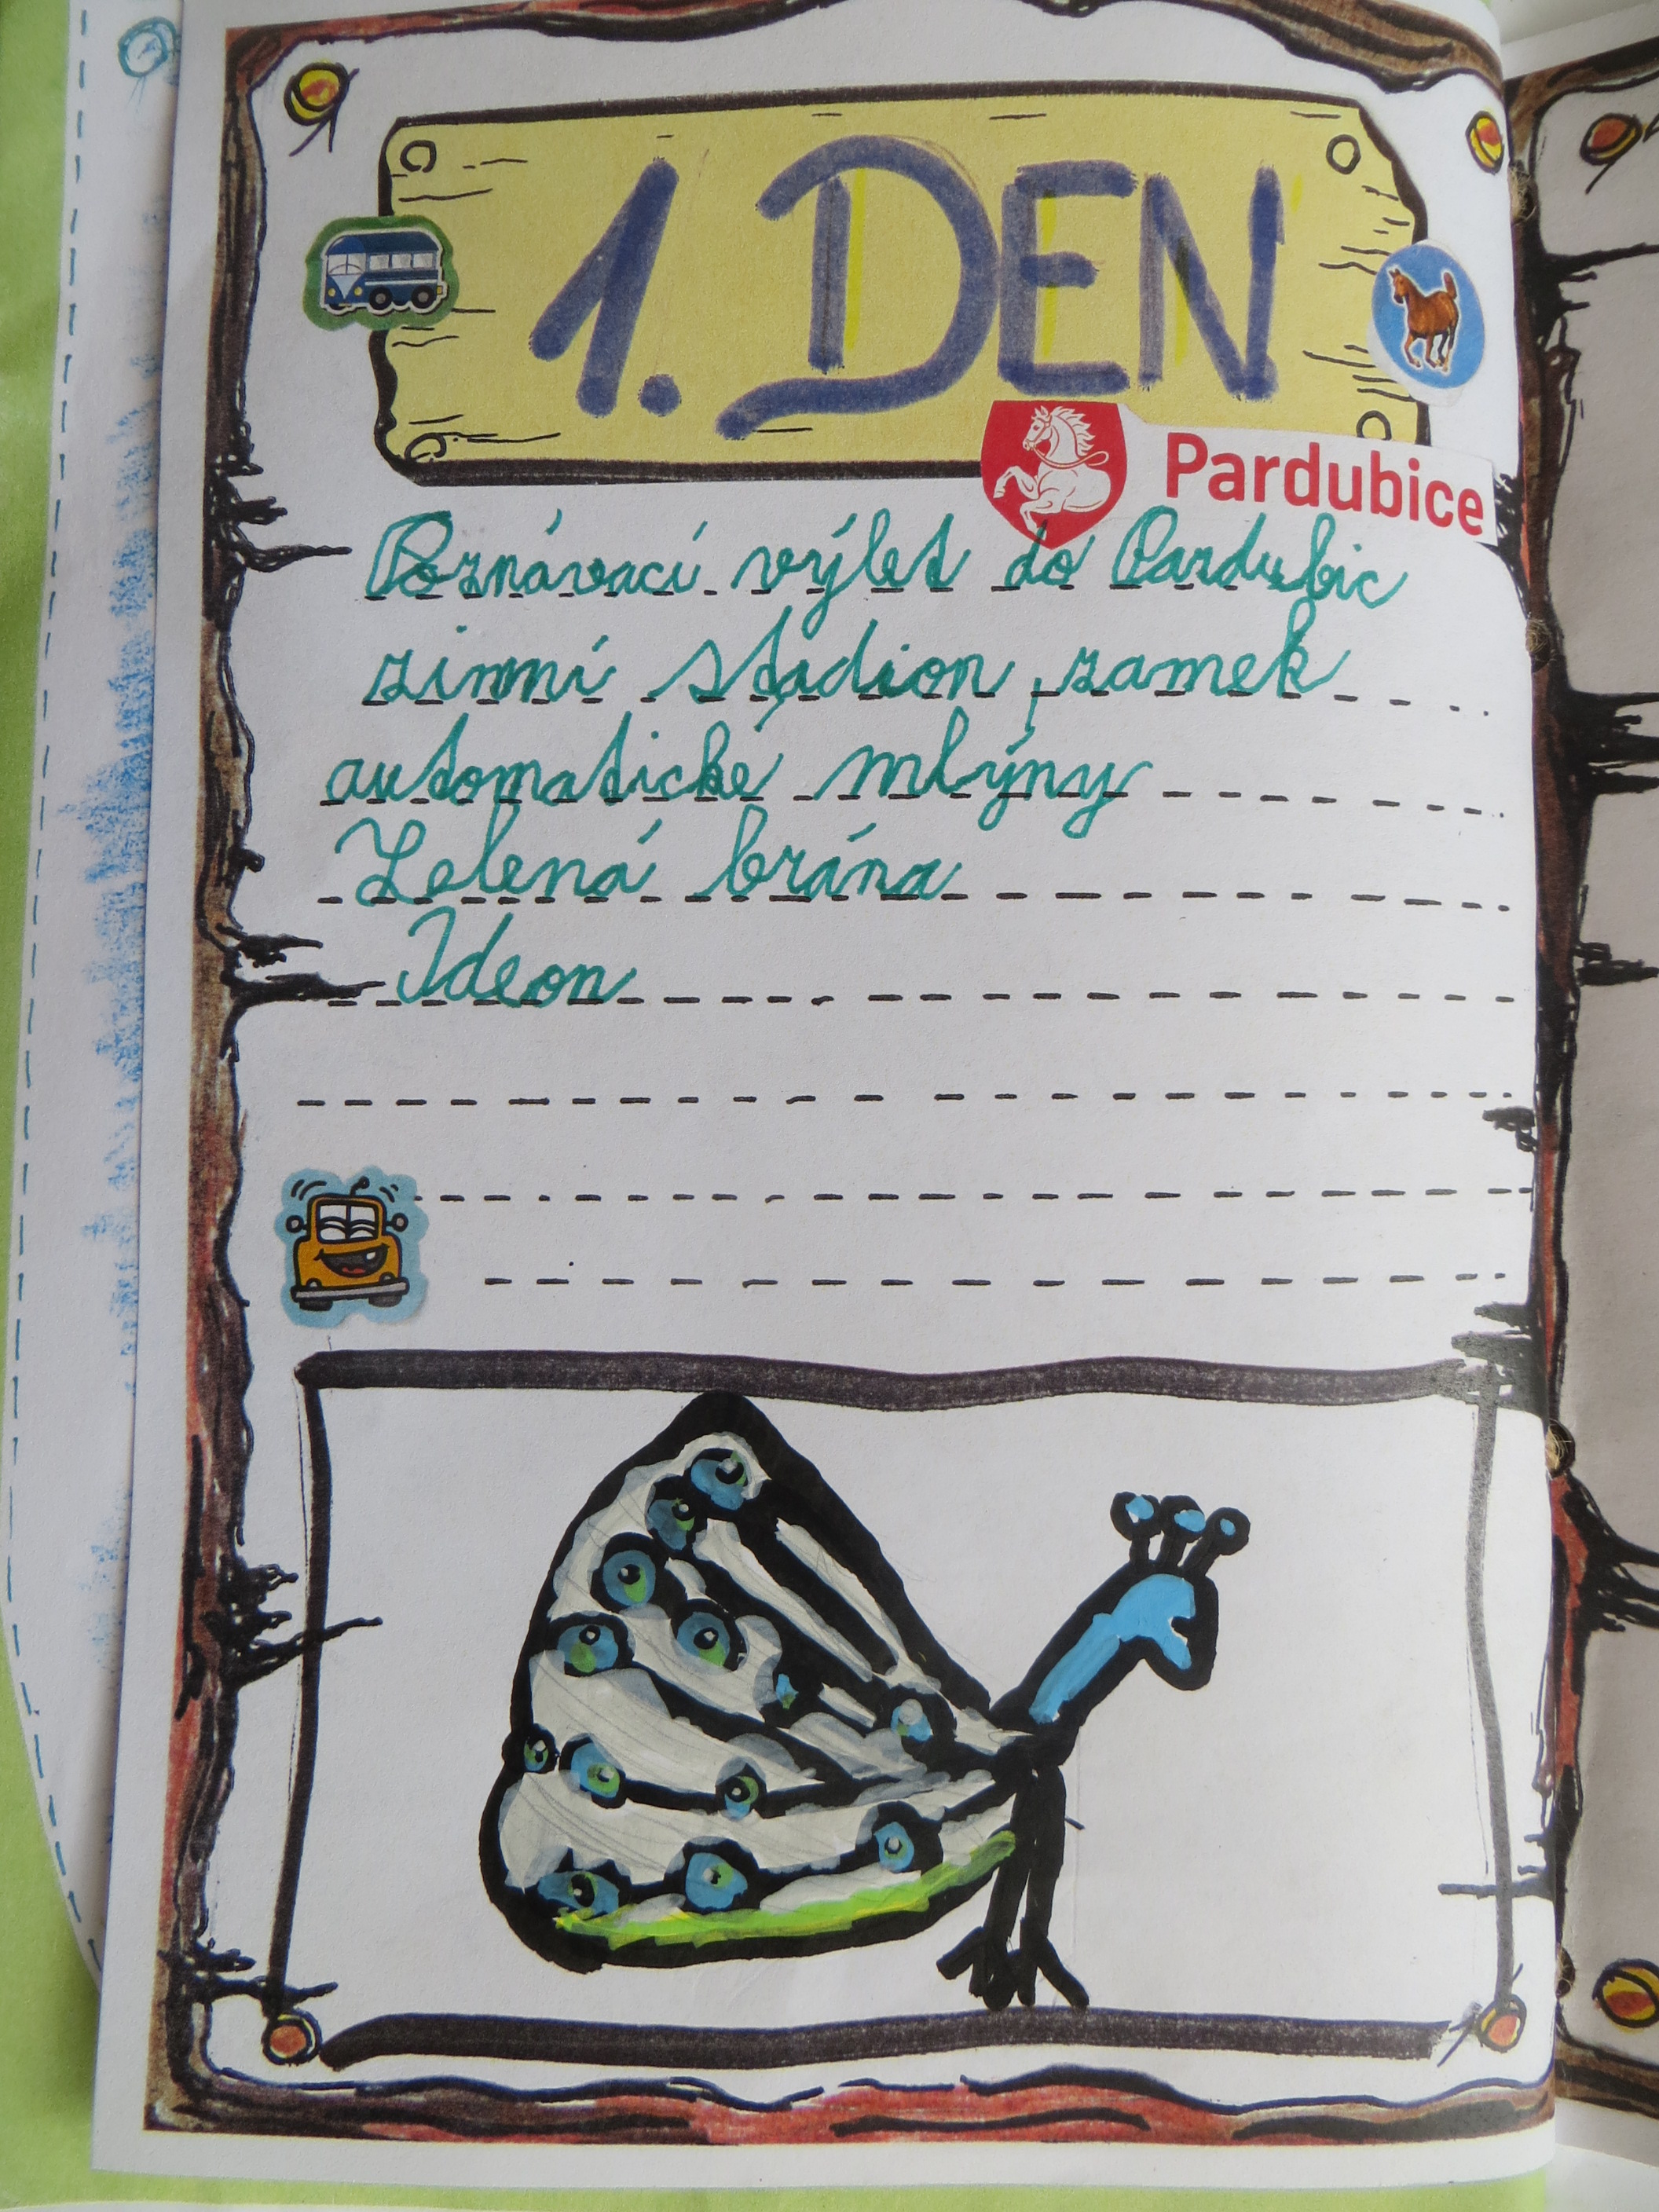 1. DEN
Pardubice
Poznávací výlet do Pardubic
zimní stadion, zamek
automatické mlýny
Zelená brána
Ideon